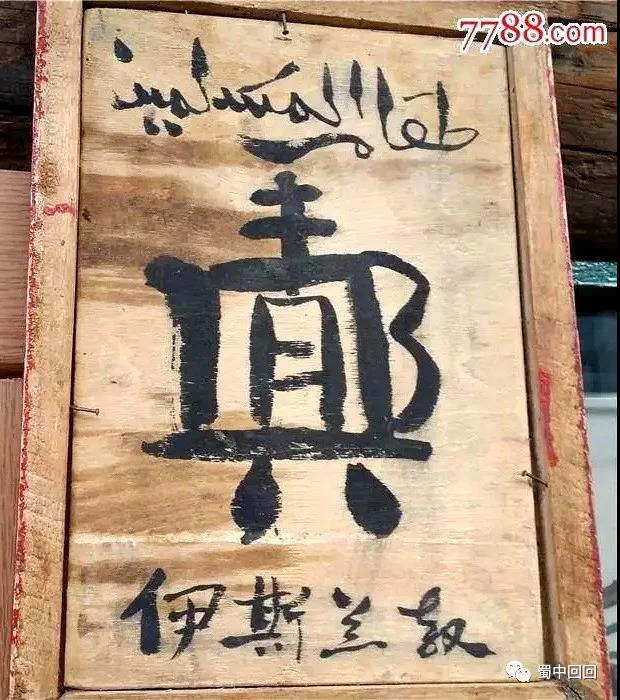 7788.com
طعام المسلمين
清真
伊斯兰教
蜀中回回